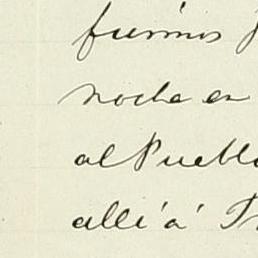 fuimos
noche en
al Pueblo
allí á